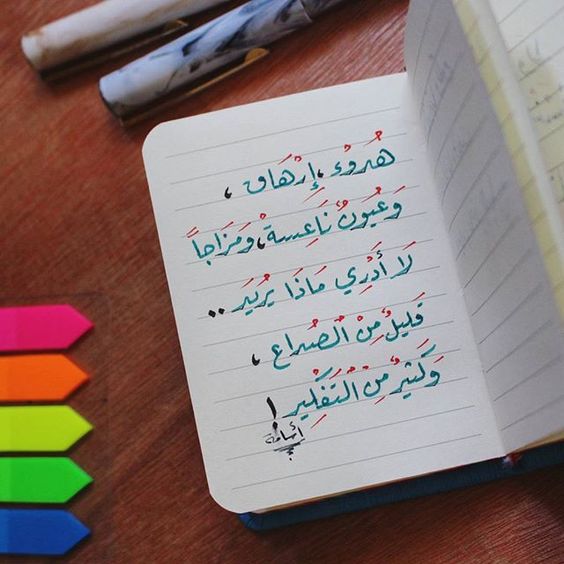 هُدُوْء ، إِرْهَاق ،
وَعُيُونٌ نَاعِسَةْ، وَمَزَاجاً
لَا أَدْرِي مَاذَا يُرِيدَ ..
قَلِيلٌ مِنْ الصُدَاع ،
وَكَثِيرٌ مِنْ التَفْكِير !
أسامة